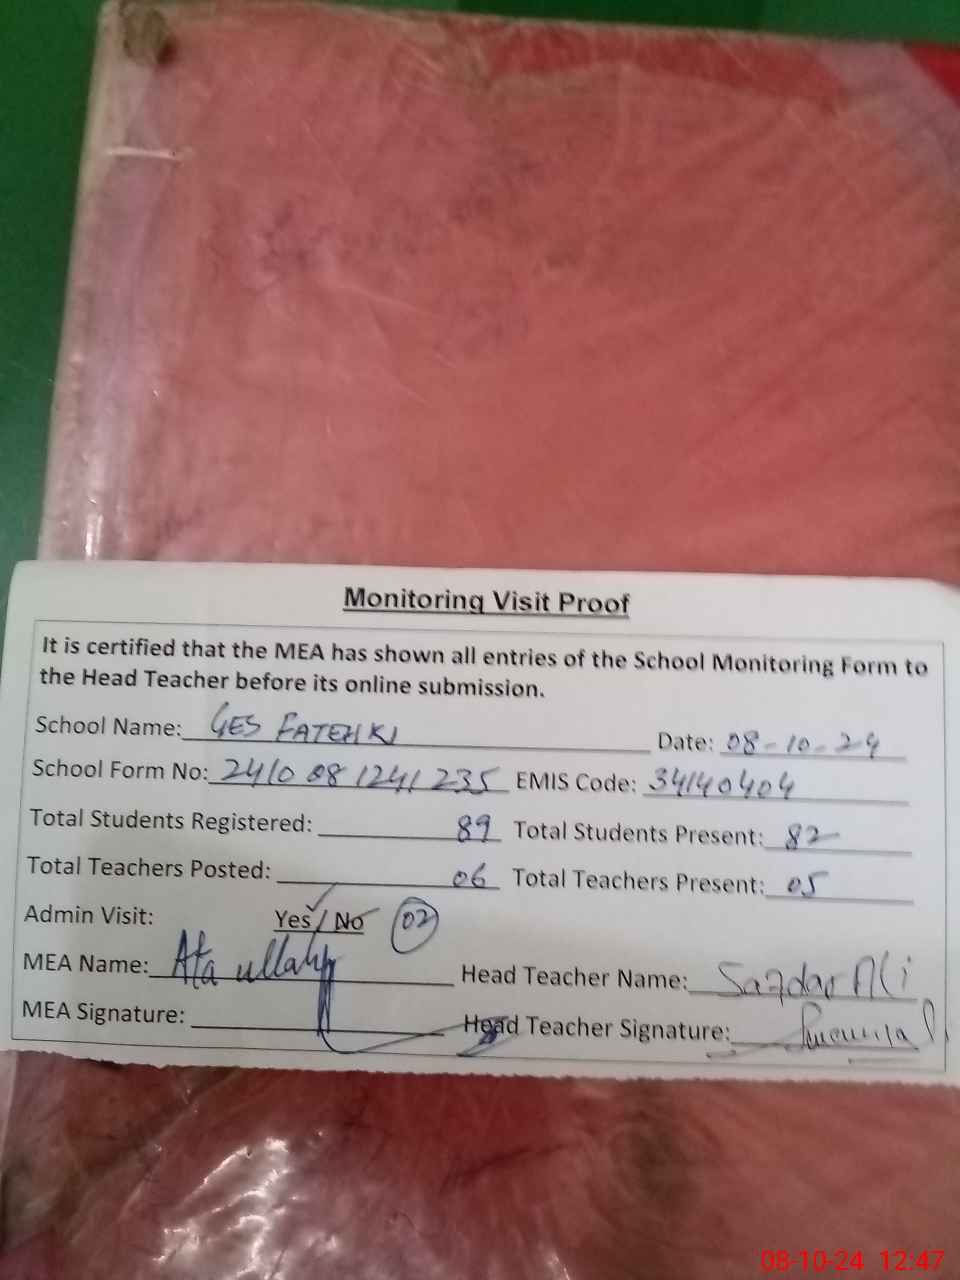 Monitoring Visit Proof
It is certified that the MEA has shown all entries of the School Monitoring Form to
the Head Teacher before its online submission.
School Name: GES FATEHKI Date: 08-10-24
School Form No: 241008 1241 235 EMIS Code: 34140404
Total Students Registered: 89 Total Students Present: 82
Total Teachers Posted: 06 Total Teachers Present: 05
Admin Visit: Yes / No 02
MEA Name: Ata ullah Head Teacher Name: Safdar Ali
MEA Signature: Head Teacher Signature:
08-10-24 12:47